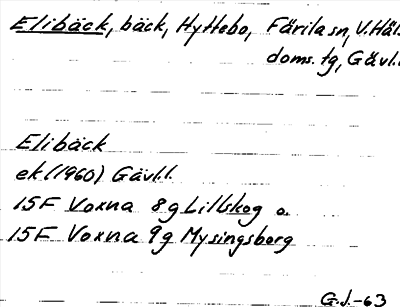 Elibäck, bäck, Hyttebo, Färila sn, V. Häl.
doms. tg, Gävl.
Elibäck
ek (1960) Gävl.l.
15F Voxna 8g Lillskog o.
15F Voxna 9g Mysingsberg
G.J.-63